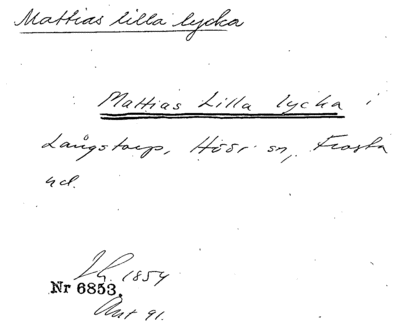 Mattias lilla lycka
Mattias Lilla lycka i
Långstorp, Höör sn, Frosta
hd.
1854
Nr 6853.
Ant 91.